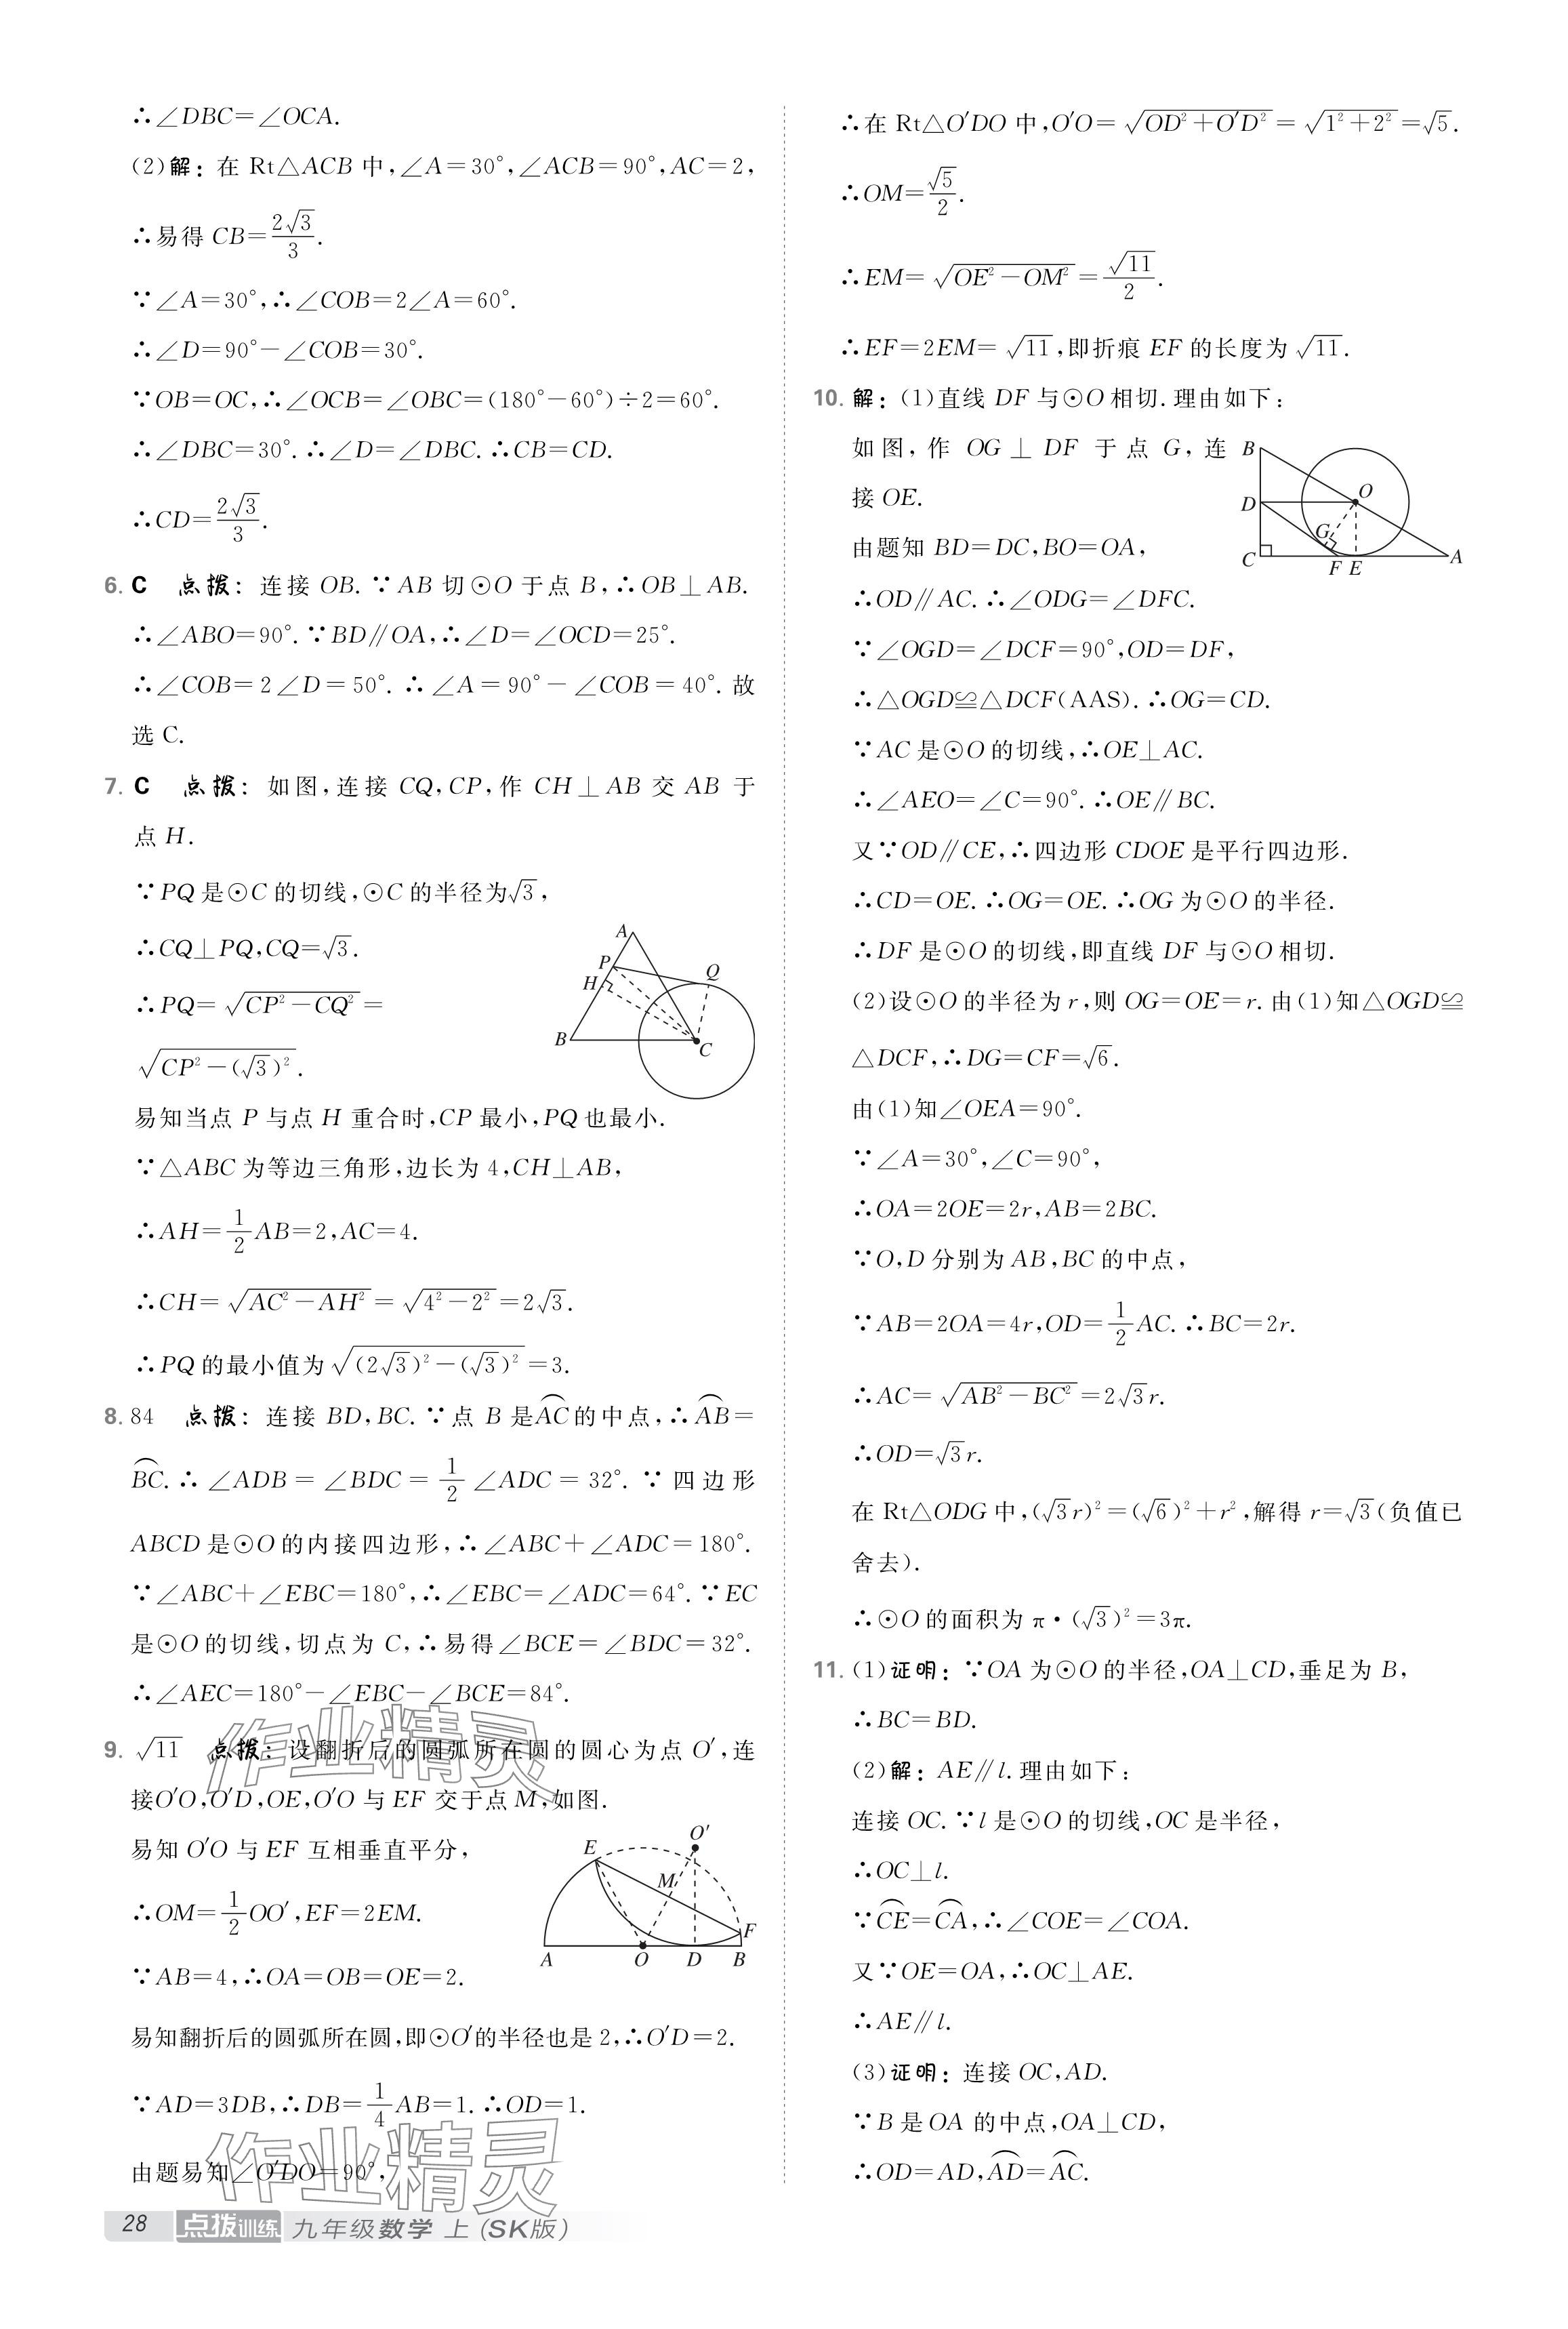 ∴∠DBC=∠OCA.
(2)解：在 Rt△ACB 中,∠A=30°,∠ACB=90°,AC=2,
∴易得 CB=2√3/3.
∵∠A=30°,∴∠COB=2∠A=60°.
∴∠D=90°-∠COB=30°.
∵OB=OC,∴∠OCB=∠OBC=(180°-60°)÷2=60°.
∴∠DBC=30°.∴∠D=∠DBC.∴CB=CD.
∴CD=2√3/3.
6. C 点拨：连接 OB.∵AB 切⊙O 于点 B,∴OB⊥AB.
∴∠ABO=90°.∵BD∥OA,∴∠D=∠OCD=25°.
∴∠COB=2∠D=50°.∴∠A=90°-∠COB=40°.故
选 C.
7. C 点拨：如图,连接 CQ,CP,作 CH⊥AB 交 AB 于
点 H.
∵PQ 是⊙C 的切线,⊙C 的半径为√3,
∴CQ⊥PQ,CQ=√3.
∴PQ=√(CP²-CQ²)=
√(CP²-(√3)²).
A
P
H
Q
B
C
易知当点 P 与点 H 重合时,CP 最小,PQ 也最小.
∵△ABC 为等边三角形,边长为 4,CH⊥AB,
∴AH=1/2AB=2,AC=4.
∴CH=√(AC²-AH²)=√(4²-2²)=2√3.
∴PQ 的最小值为√((2√3)²-(√3)²)=3.
8. 84 点拨：连接 BD,BC.∵点 B 是⌒AC的中点,∴⌒AB=
⌒BC.∴∠ADB=∠BDC=1/2∠ADC=32°.∵四边形
ABCD 是⊙O 的内接四边形,∴∠ABC+∠ADC=180°.
∵∠ABC+∠EBC=180°,∴∠EBC=∠ADC=64°.∵EC
是⊙O 的切线,切点为 C,∴易得∠BCE=∠BDC=32°.
∴∠AEC=180°-∠EBC-∠BCE=84°.
9. √11 点拨：设翻折后的圆弧所在圆的圆心为点 O′,连
接O′O,O′D,OE,O′O 与 EF 交于点 M,如图.
易知 O′O 与 EF 互相垂直平分,
∴OM=1/2OO′,EF=2EM.
∵AB=4,∴OA=OB=OE=2.
E
O′
M
F
A
O
D
B
易知翻折后的圆弧所在圆,即⊙O′的半径也是 2,∴O′D=2.
∵AD=3DB,∴DB=1/4AB=1.∴OD=1.
由题易知∠O′DO=90°,
作业精灵
作业精灵
28 点拨训练 九年级数学 上(SK版)
∴在 Rt△O′DO 中,O′O=√(OD²+O′D²)=√(1²+2²)=√5.
∴OM=√5/2.
∴EM=√(OE²-OM²)=√11/2.
∴EF=2EM=√11,即折痕 EF 的长度为√11.
10. 解：(1)直线 DF 与⊙O 相切.理由如下：
如图,作 OG⊥DF 于点 G,连
接 OE.
由题知 BD=DC,BO=OA,
B
O
D
G
C
F
E
A
∴OD∥AC.∴∠ODG=∠DFC.
∵∠OGD=∠DCF=90°,OD=DF,
∴△OGD≌△DCF(AAS).∴OG=CD.
∵AC 是⊙O 的切线,∴OE⊥AC.
∴∠AEO=∠C=90°.∴OE∥BC.
又∵OD∥CE,∴四边形 CDOE 是平行四边形.
∴CD=OE.∴OG=OE.∴OG 为⊙O 的半径.
∴DF 是⊙O 的切线,即直线 DF 与⊙O 相切.
(2)设⊙O 的半径为 r,则 OG=OE=r.由(1)知△OGD≌
△DCF,∴DG=CF=√6.
由(1)知∠OEA=90°.
∵∠A=30°,∠C=90°,
∴OA=2OE=2r,AB=2BC.
∵O,D 分别为 AB,BC 的中点,
∵AB=2OA=4r,OD=1/2AC.∴BC=2r.
∴AC=√(AB²-BC²)=2√3r.
∴OD=√3r.
在 Rt△ODG 中,(√3r)²=(√6)²+r²,解得 r=√3(负值已
舍去).
∴⊙O 的面积为 π·(√3)²=3π.
11. (1)证明：∵OA 为⊙O 的半径,OA⊥CD,垂足为 B,
∴BC=BD.
(2)解：AE∥l.理由如下：
连接 OC.∵l 是⊙O 的切线,OC 是半径,
∴OC⊥l.
∵⌒CE=⌒CA,∴∠COE=∠COA.
又∵OE=OA,∴OC⊥AE.
∴AE∥l.
(3)证明：连接 OC,AD.
∵B 是 OA 的中点,OA⊥CD,
∴OD=AD,⌒AD=⌒AC.